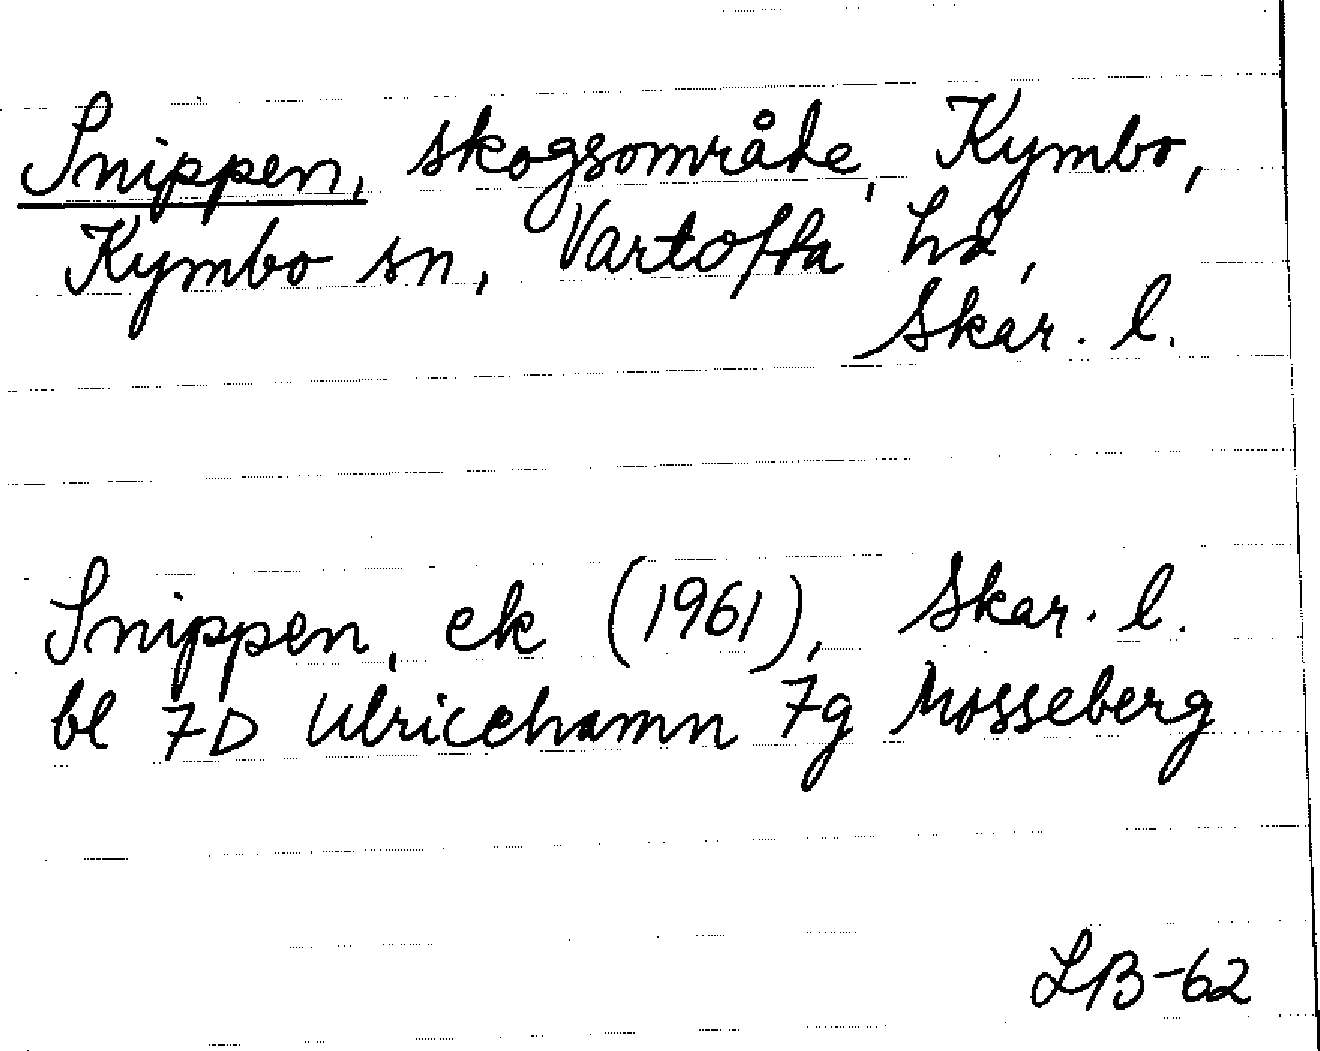 Snippen, skogsområde, Kymbo,
Kymbo sn, Vartofta hd,
Skar. l.
Snippen, ek (1961), Skar. l.
bl 7D Ulricehamn 7g Mosseberg
LB-62